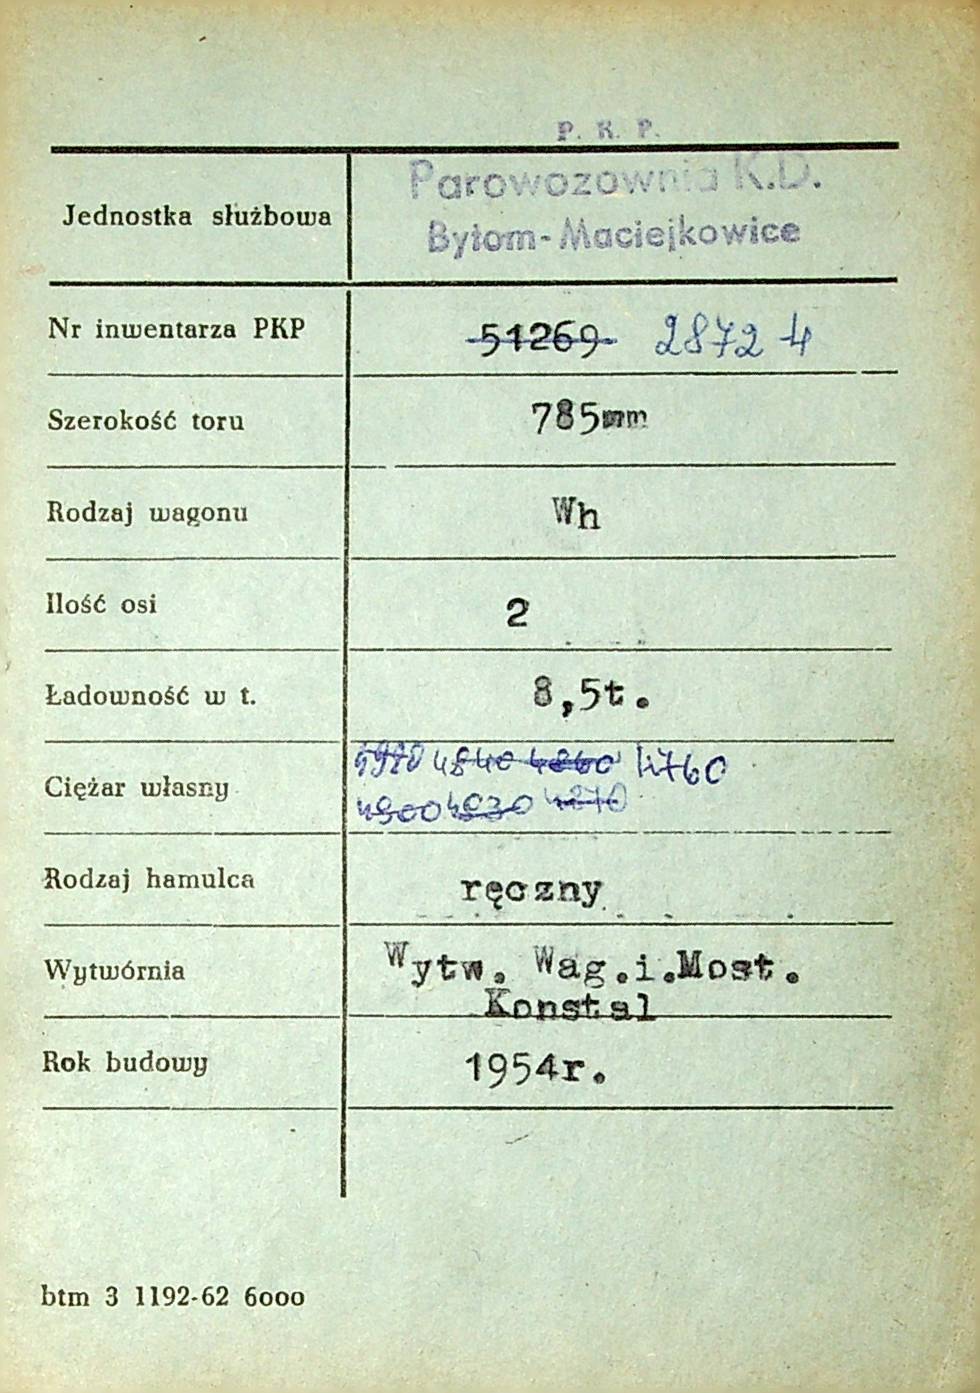 P. K. P.
Jednostka służbowa Parowozownia K.D.
Bytom-Maciejkowice
Nr inwentarza PKP 51269 28724
Szerokość toru 785mm
Rodzaj wagonu Wh
Ilość osi 2
Ładowność w t. 8,5t.
Ciężar własny 4840 4860 4760
4900 4930 4870
Rodzaj hamulca ręczny
Wytwórnia Wytw. Wag.i.Most.
Konstal
Rok budowy 1954r.
btm 3 1192-62 6000